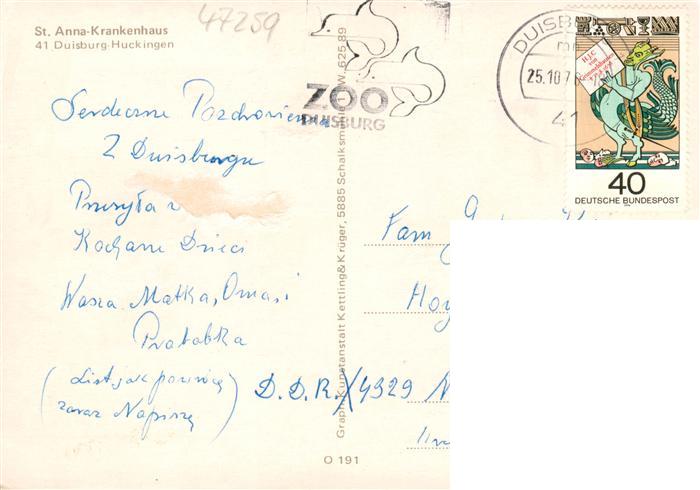 47259
St. Anna-Krankenhaus
41 Duisburg-Huckingen
ZOO
DUISBURG
DUISB
25.10.7
41
40
DEUTSCHE BUNDESPOST
Serdeczne Pozdrowienia
Z Duisburga
Przesyła
Kochane Dzieci
Wasza Matka, Oma, i
Prababka
(List jak powrócę)
zaraz Napiszę
Fam
D.D.R. 4329
Graph. Kunstanstalt Kettling & Krüger, 5885 Schalksmühle
W. 625 89
O 191